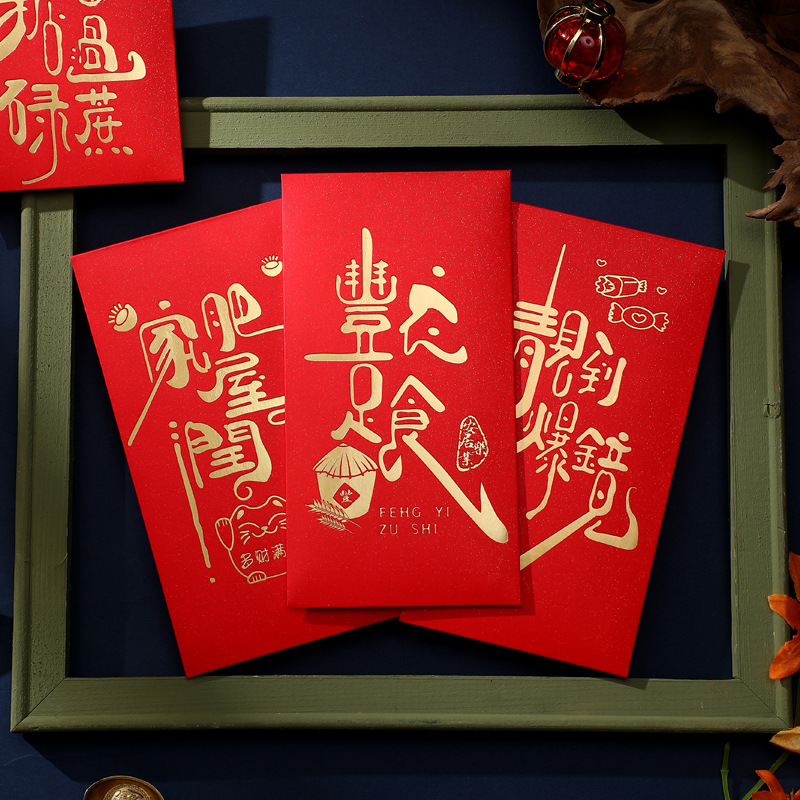 過
碌蔗
家肥
屋
潤
多财满
豐衣
足食
安居樂業
豐
FENG YI
ZU SHI
靚到
爆鏡